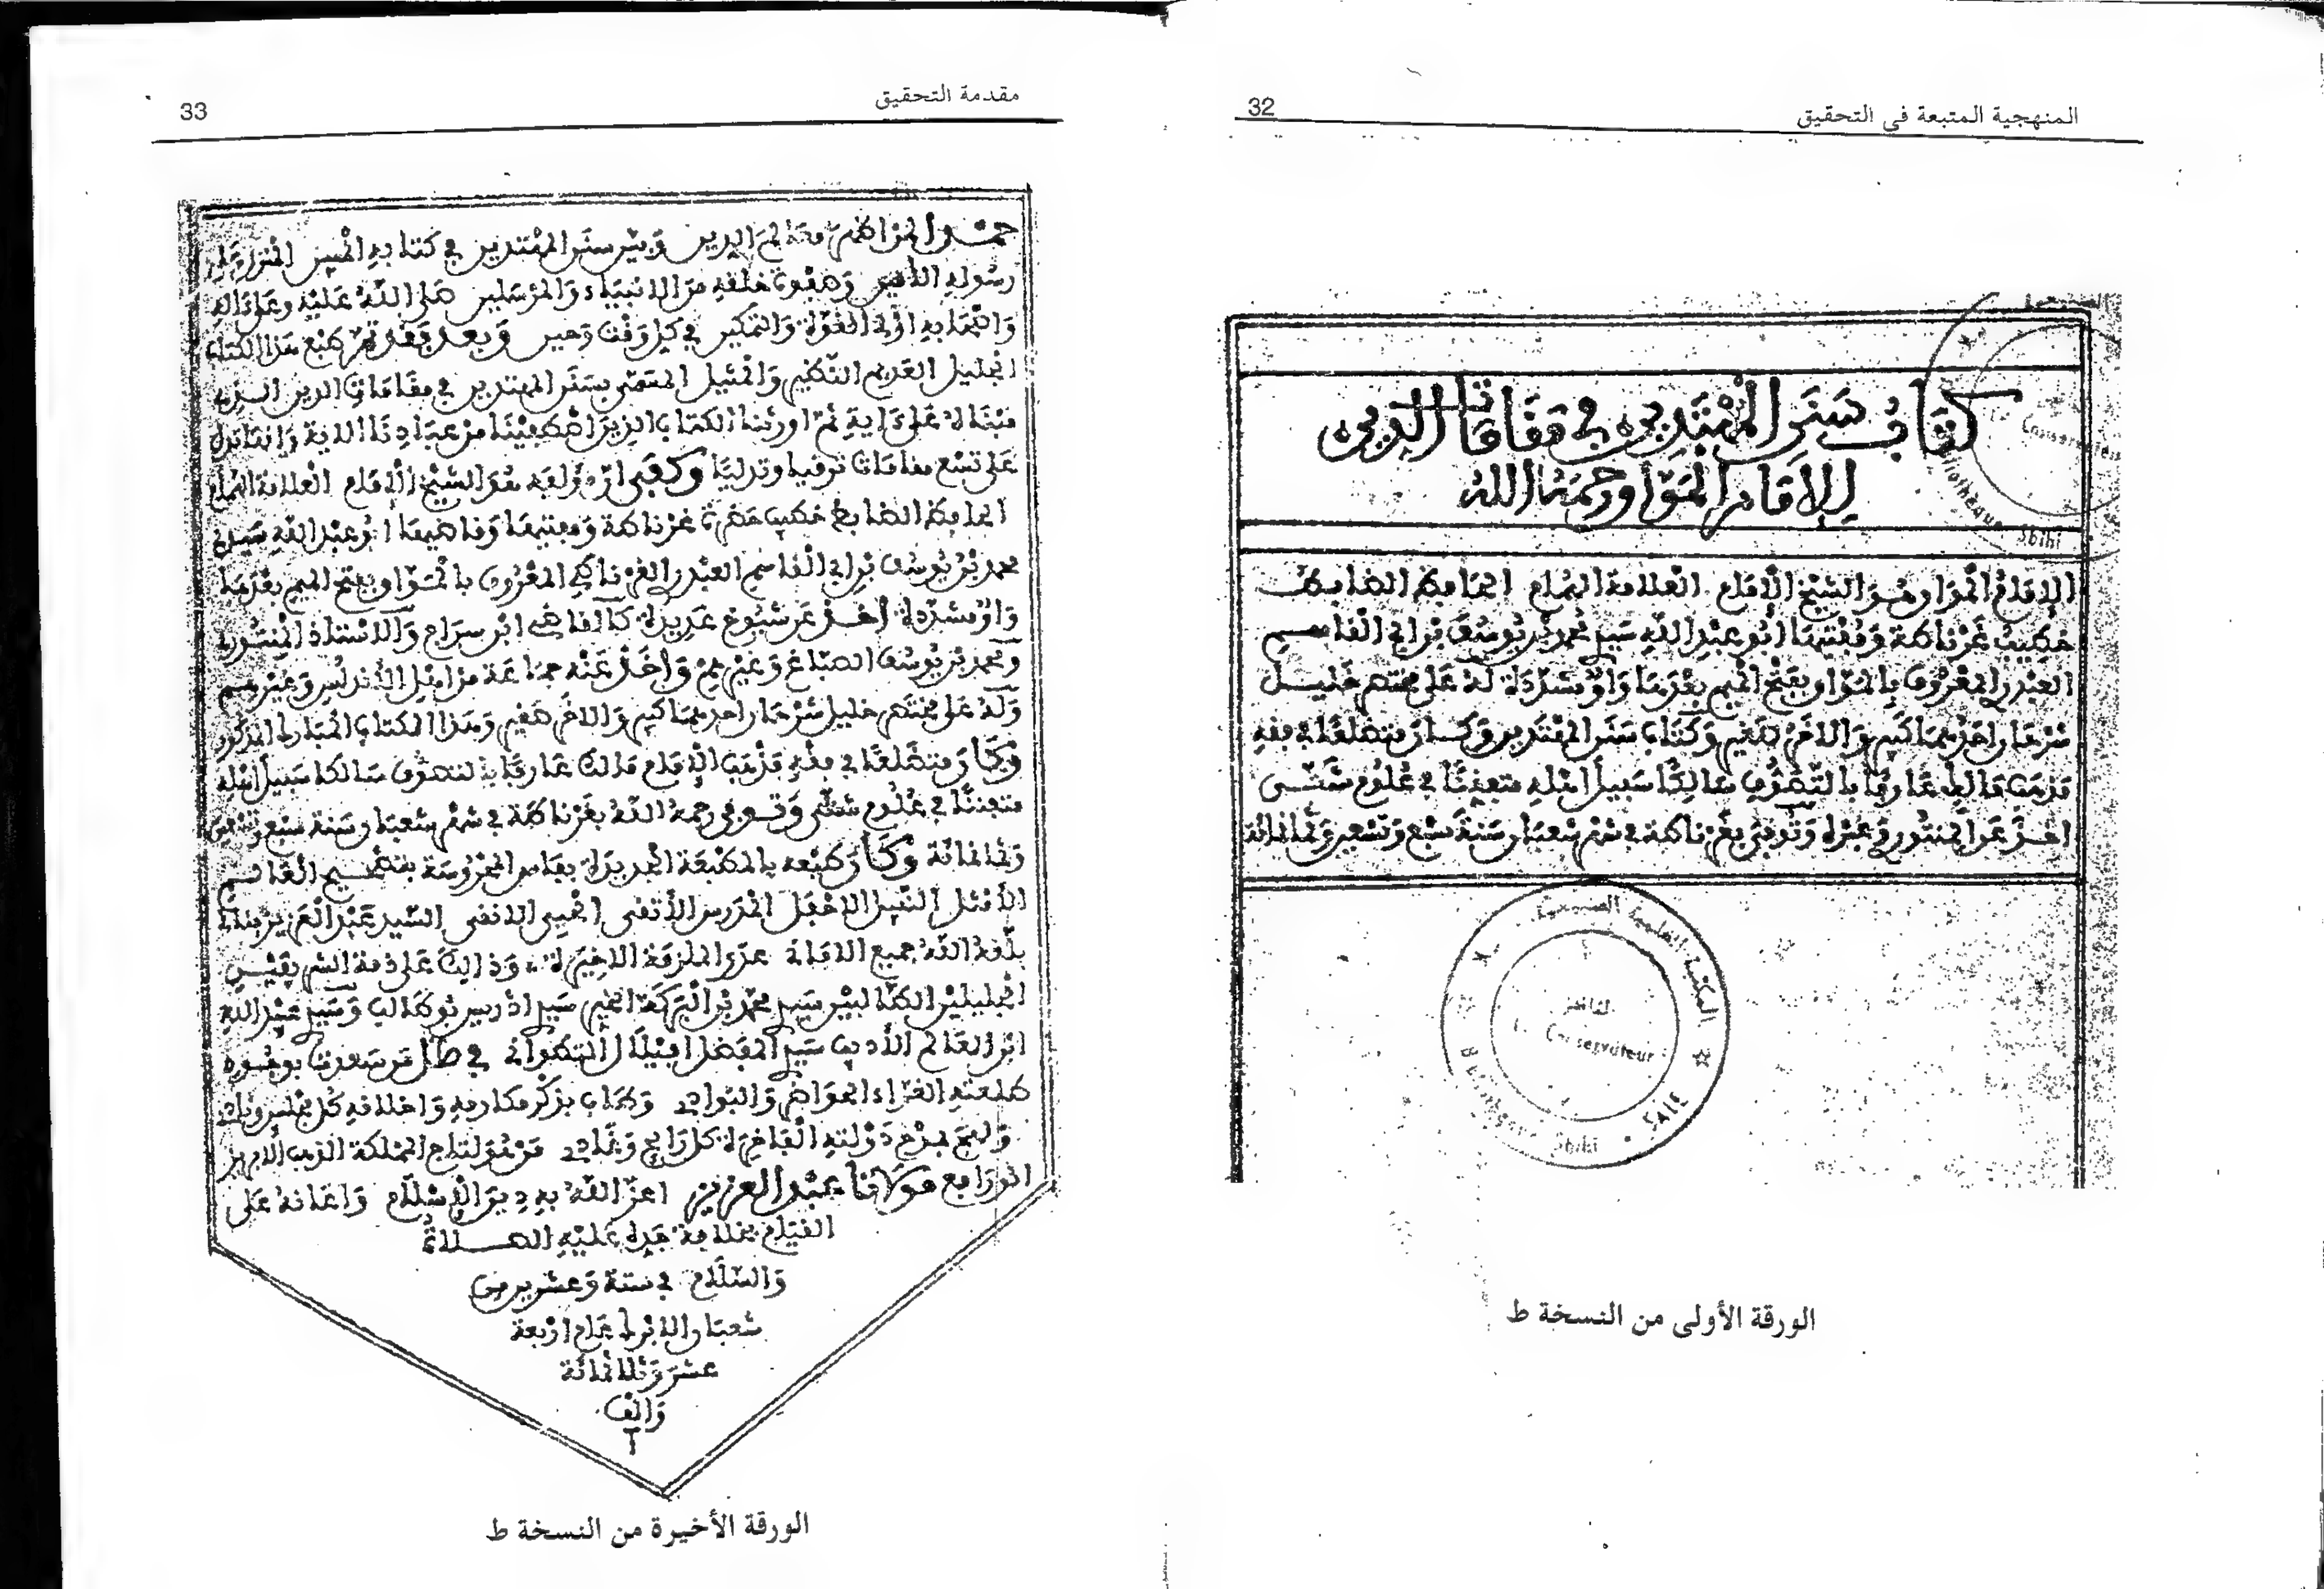 المنهجية المتبعة في التحقيق
32
كتاب سنن المهتدين في مقامات الدين
للإمام المواق رحمه الله
الإمام المواق هو الشيخ الإمام العلامة الهمام الحافظ الضابط
خطيب غرناطة ومفتيها أبو عبد الله سيدي محمد بن يوسف بن أبي القاسم
العبدري المعروف بالمواق بفتح الميم بعدها واو مشددة له على مختصر خليل
شرحان أحدهما كبير والآخر صغير وكتاب سنن المهتدين وكان متضلعا في فقه
مذهب مالك عارفا بالتصوف سالكا سبيل أهله متفننا في علوم شتى
أخذ عن المنتوري وغيره وتوفي بغرناطة في شهر شعبان سنة سبع وتسعين وثمانمائة
المكتبة العلمية الصبيحية
Conservateur
Bibliothèque Sbihi
SALE
الورقة الأولى من النسخة ط
مقدمة التحقيق
33
حمدا لمن أظهر معالم الدين وبين سنن المهتدين في كتابه المبين المنزل على
رسوله الأمين وصفوة خلقه من الأنبياء والمرسلين صلى الله عليه وعلى آله
وأصحابه أولي القوة والتمكين في كل وقت وحين وبعد فقد تم طبع هذا الكتاب
الجليل العديم النظير والمثيل المسمى بسنن المهتدين في مقامات الدين الذي
مبناه على آية ثم أورثنا الكتاب الذين اصطفينا من عبادنا الآية وأنها تدل
على تسع مقامات ترقيا وتدليا وكفى أن مؤلفه هو الشيخ الإمام العلامة الهمام
الحافظ الضابط خطيب حضرة غرناطة ومفتيها وقاضيها أبو عبد الله سيدي
محمد بن يوسف بن أبي القاسم العبدري الغرناطي المعروف بالمواق بفتح الميم بعدها
واو مشددة أخذ عن شيوخ عديدة كالقاضي ابن سراج والأستاذ المنتوري
ومحمد بن يوسف الصناع وغيرهم وأخذ عنه جماعة من أهل الأندلس وغيرهم
وله على مختصر خليل شرحان أحدهما كبير والآخر صغير وهذا الكتاب المبارك المذكور
وكان متضلعا في فقه مذهب الإمام مالك عارفا بالتصوف سالكا سبيل أهله
متفننا في علوم شتى وتوفي رحمه الله بغرناطة في شهر شعبان سنة سبع وتسعين
وثمانمائة وكان طبعه بالمطبعة الجديدة بفاس المحروسة بتصحيح العالم
الأمثل النبيل الأحفل المدرس الأتقى الخير الأنقى السيد عبد العزيز بناني
بلغه الله جميع الأماني عدى الملزمة الأخيرة وذلك على ذمة الشريفين
الجليلين الطالبين سيدي محمد بن البركة الخير سيدي إدريس بوطالب وسيدي عبد الله
ابن العالم الأديب سيدي المفضل أفيلال التطواني في ظل من سعدت بوجود
طلعته الغراء الحواضر والبوادي وطاب بذكر مكارمه وأخلاقه كل مجلس ونادي
مولانا عبد العزيز أعز الله به دين الإسلام وأعانه على
القيام بخلافة جده عليه الصلاة
والسلام في ستة وعشرين من
شعبان الأبرك عام أربعة
عشر وثلاثمائة
وألف
الورقة الأخيرة من النسخة ط